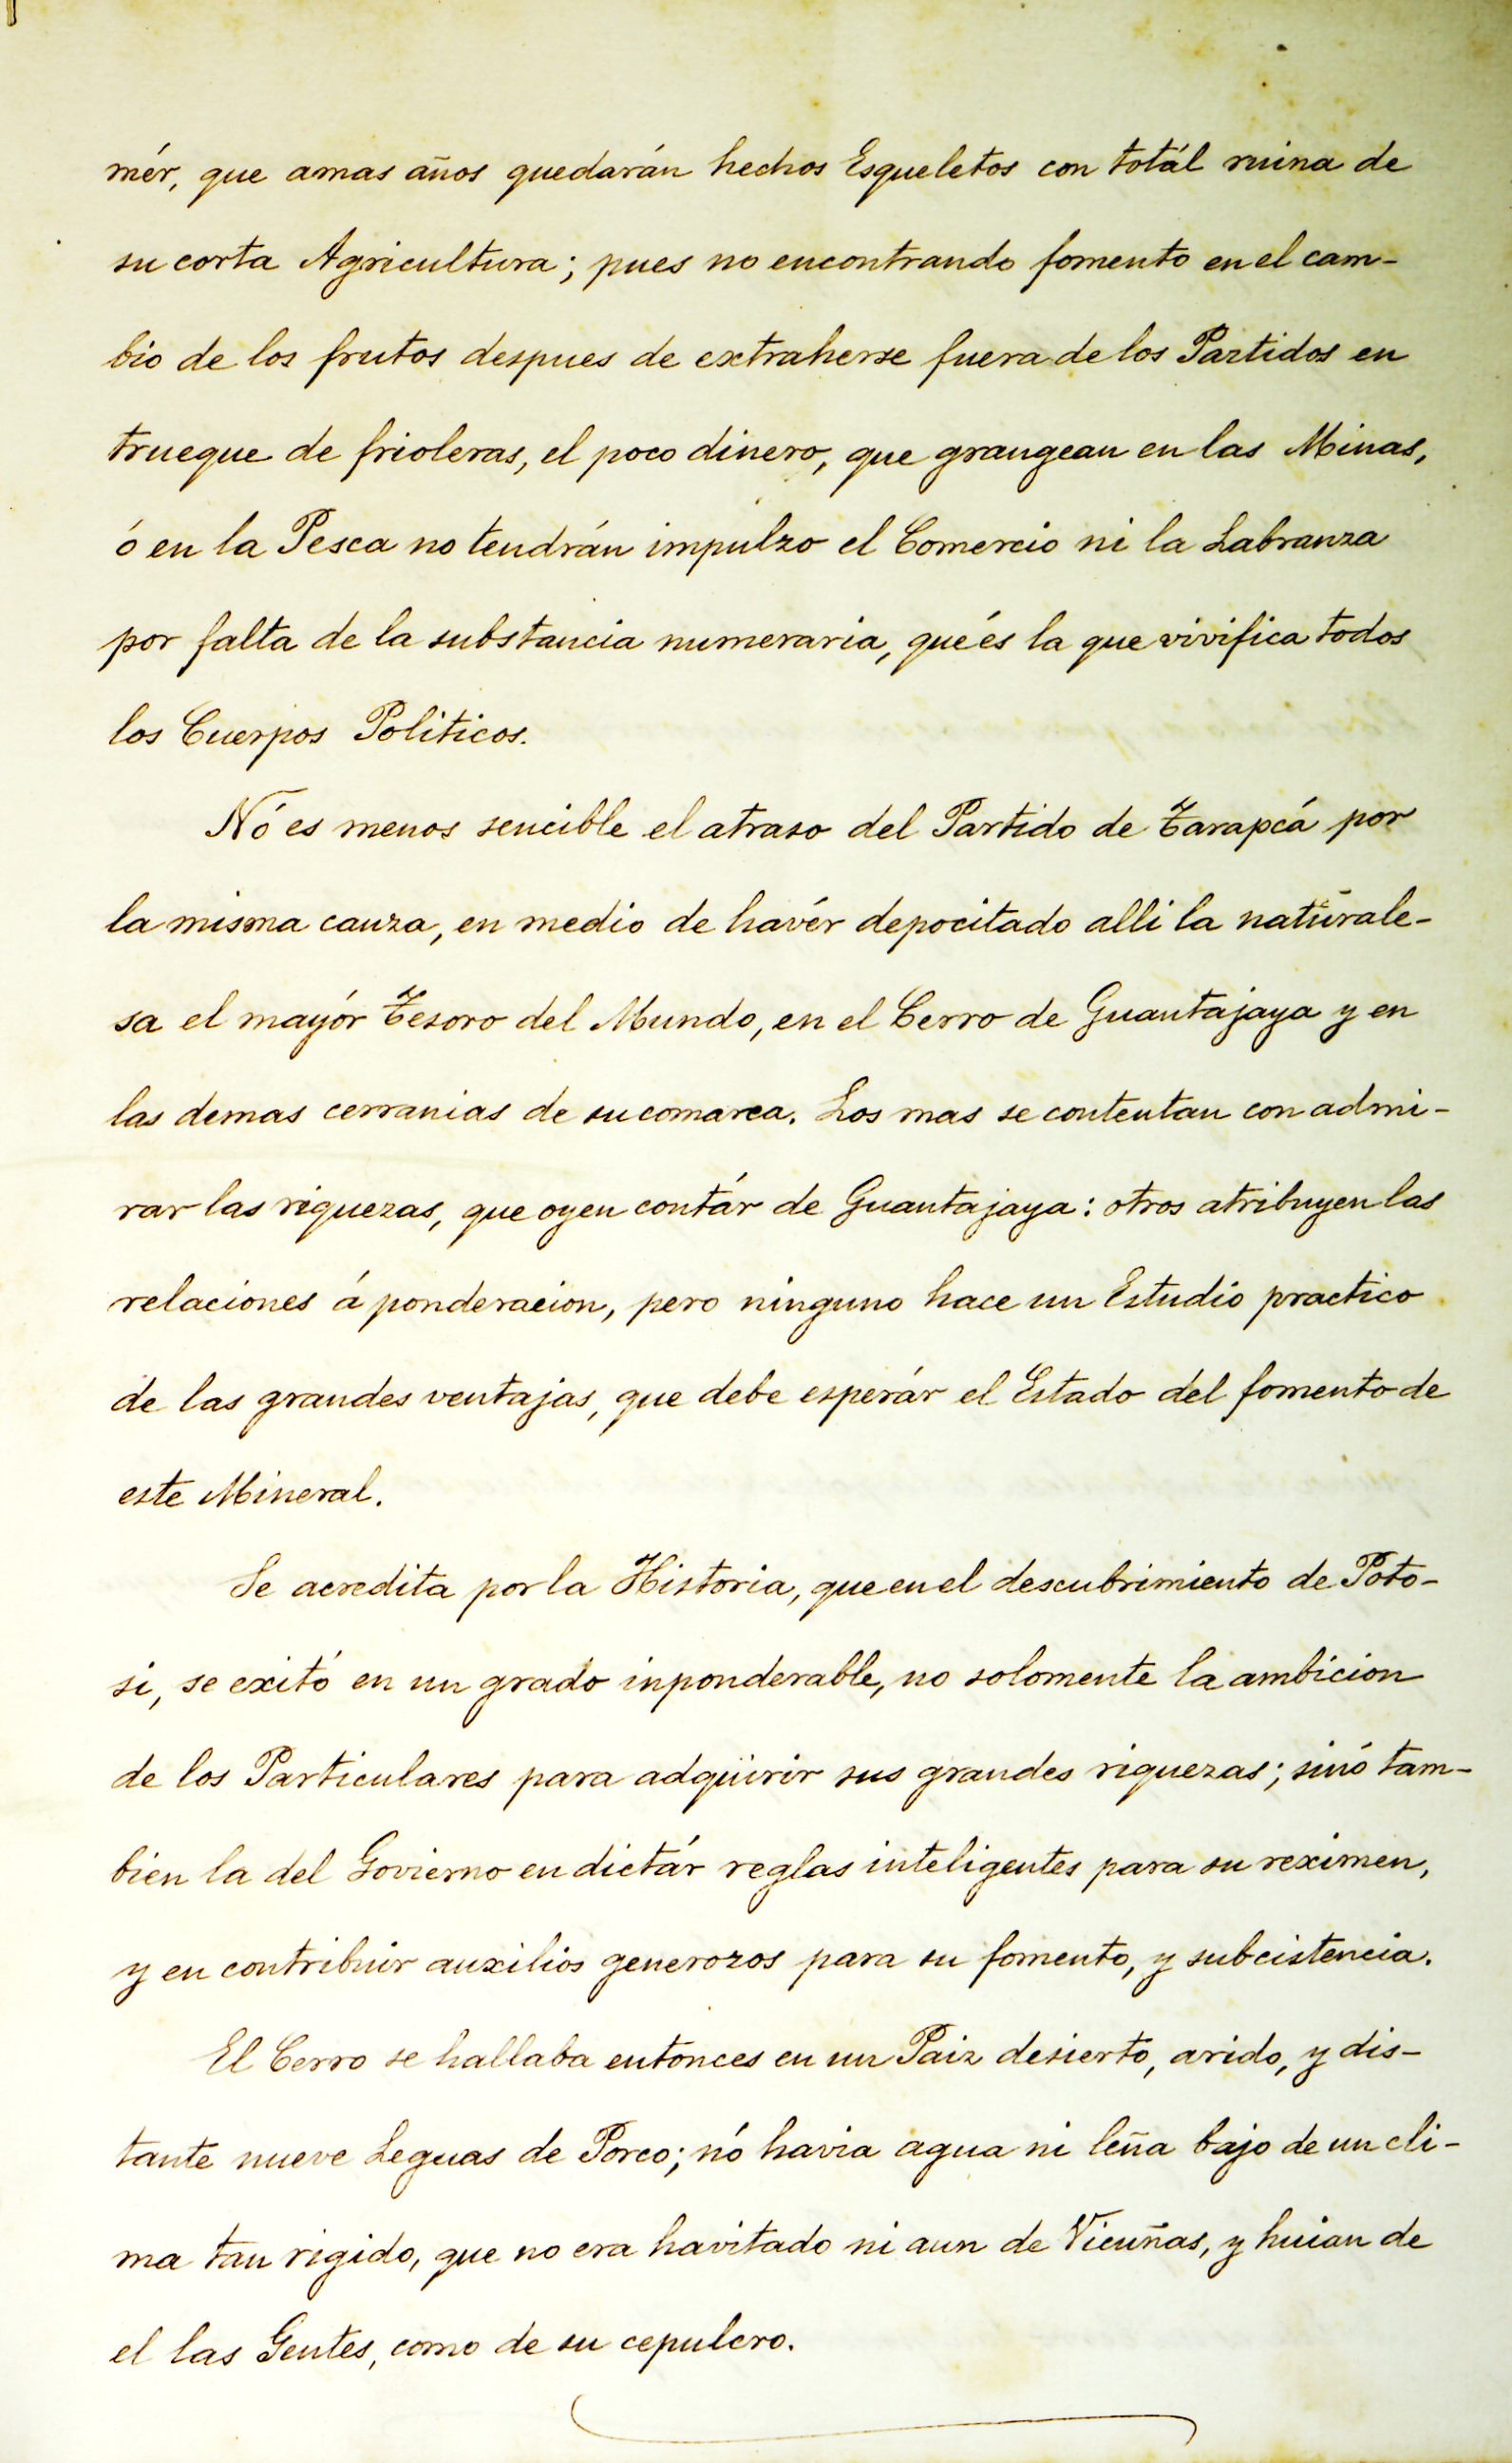 mér, que amas años quedarán hechos Esqueletos con totál ruina de
su corta Agricultura; pues no encontrando fomento en el cam-
bio de los frutos despues de extraherse fuera de los Partidos en
trueque de frioleras, el poco dinero, que grangean en las Minas,
ó en la Pesca no tendrán impulzo el Comercio ni la Labranza
por falta de la substancia numeraria, que és la que vivifica todos
los Cuerpos Politicos.
Nó es menos sencible el atraso del Partido de Tarapcá por
la misma cauza, en medio de havér depocitado alli la naturale-
sa el mayór Tesoro del Mundo, en el Cerro de Guantajaya y en
las demas cerranias de su comarca. Los mas se contentan con admi-
rar las riquezas, que oyen contár de Guantajaya: otros atribuyen las
relaciones á ponderacion, pero ninguno hace un Estudio practico
de las grandes ventajas, que debe esperár el Estado del fomento de
este Mineral.
Se acredita por la Historia, que en el descubrimiento de Poto-
si, se exitó en un grado inponderable, no solomente la ambicion
de los Particulares para adqüirir sus grandes riquezas; sinó tam-
bien la del Govierno en dictár reglas inteligentes para su reximen,
y en contribuir auxilios generozos para su fomento, y subcistencia.
El Cerro se hallaba entonces en un Paiz desierto, arido, y dis-
tante nueve Leguas de Porco; nó havia agua ni leña bajo de un cli-
ma tan rigido, que no era havitado ni aun de Vicuñas, y huian de
el las Gentes, como de su cepulcro.